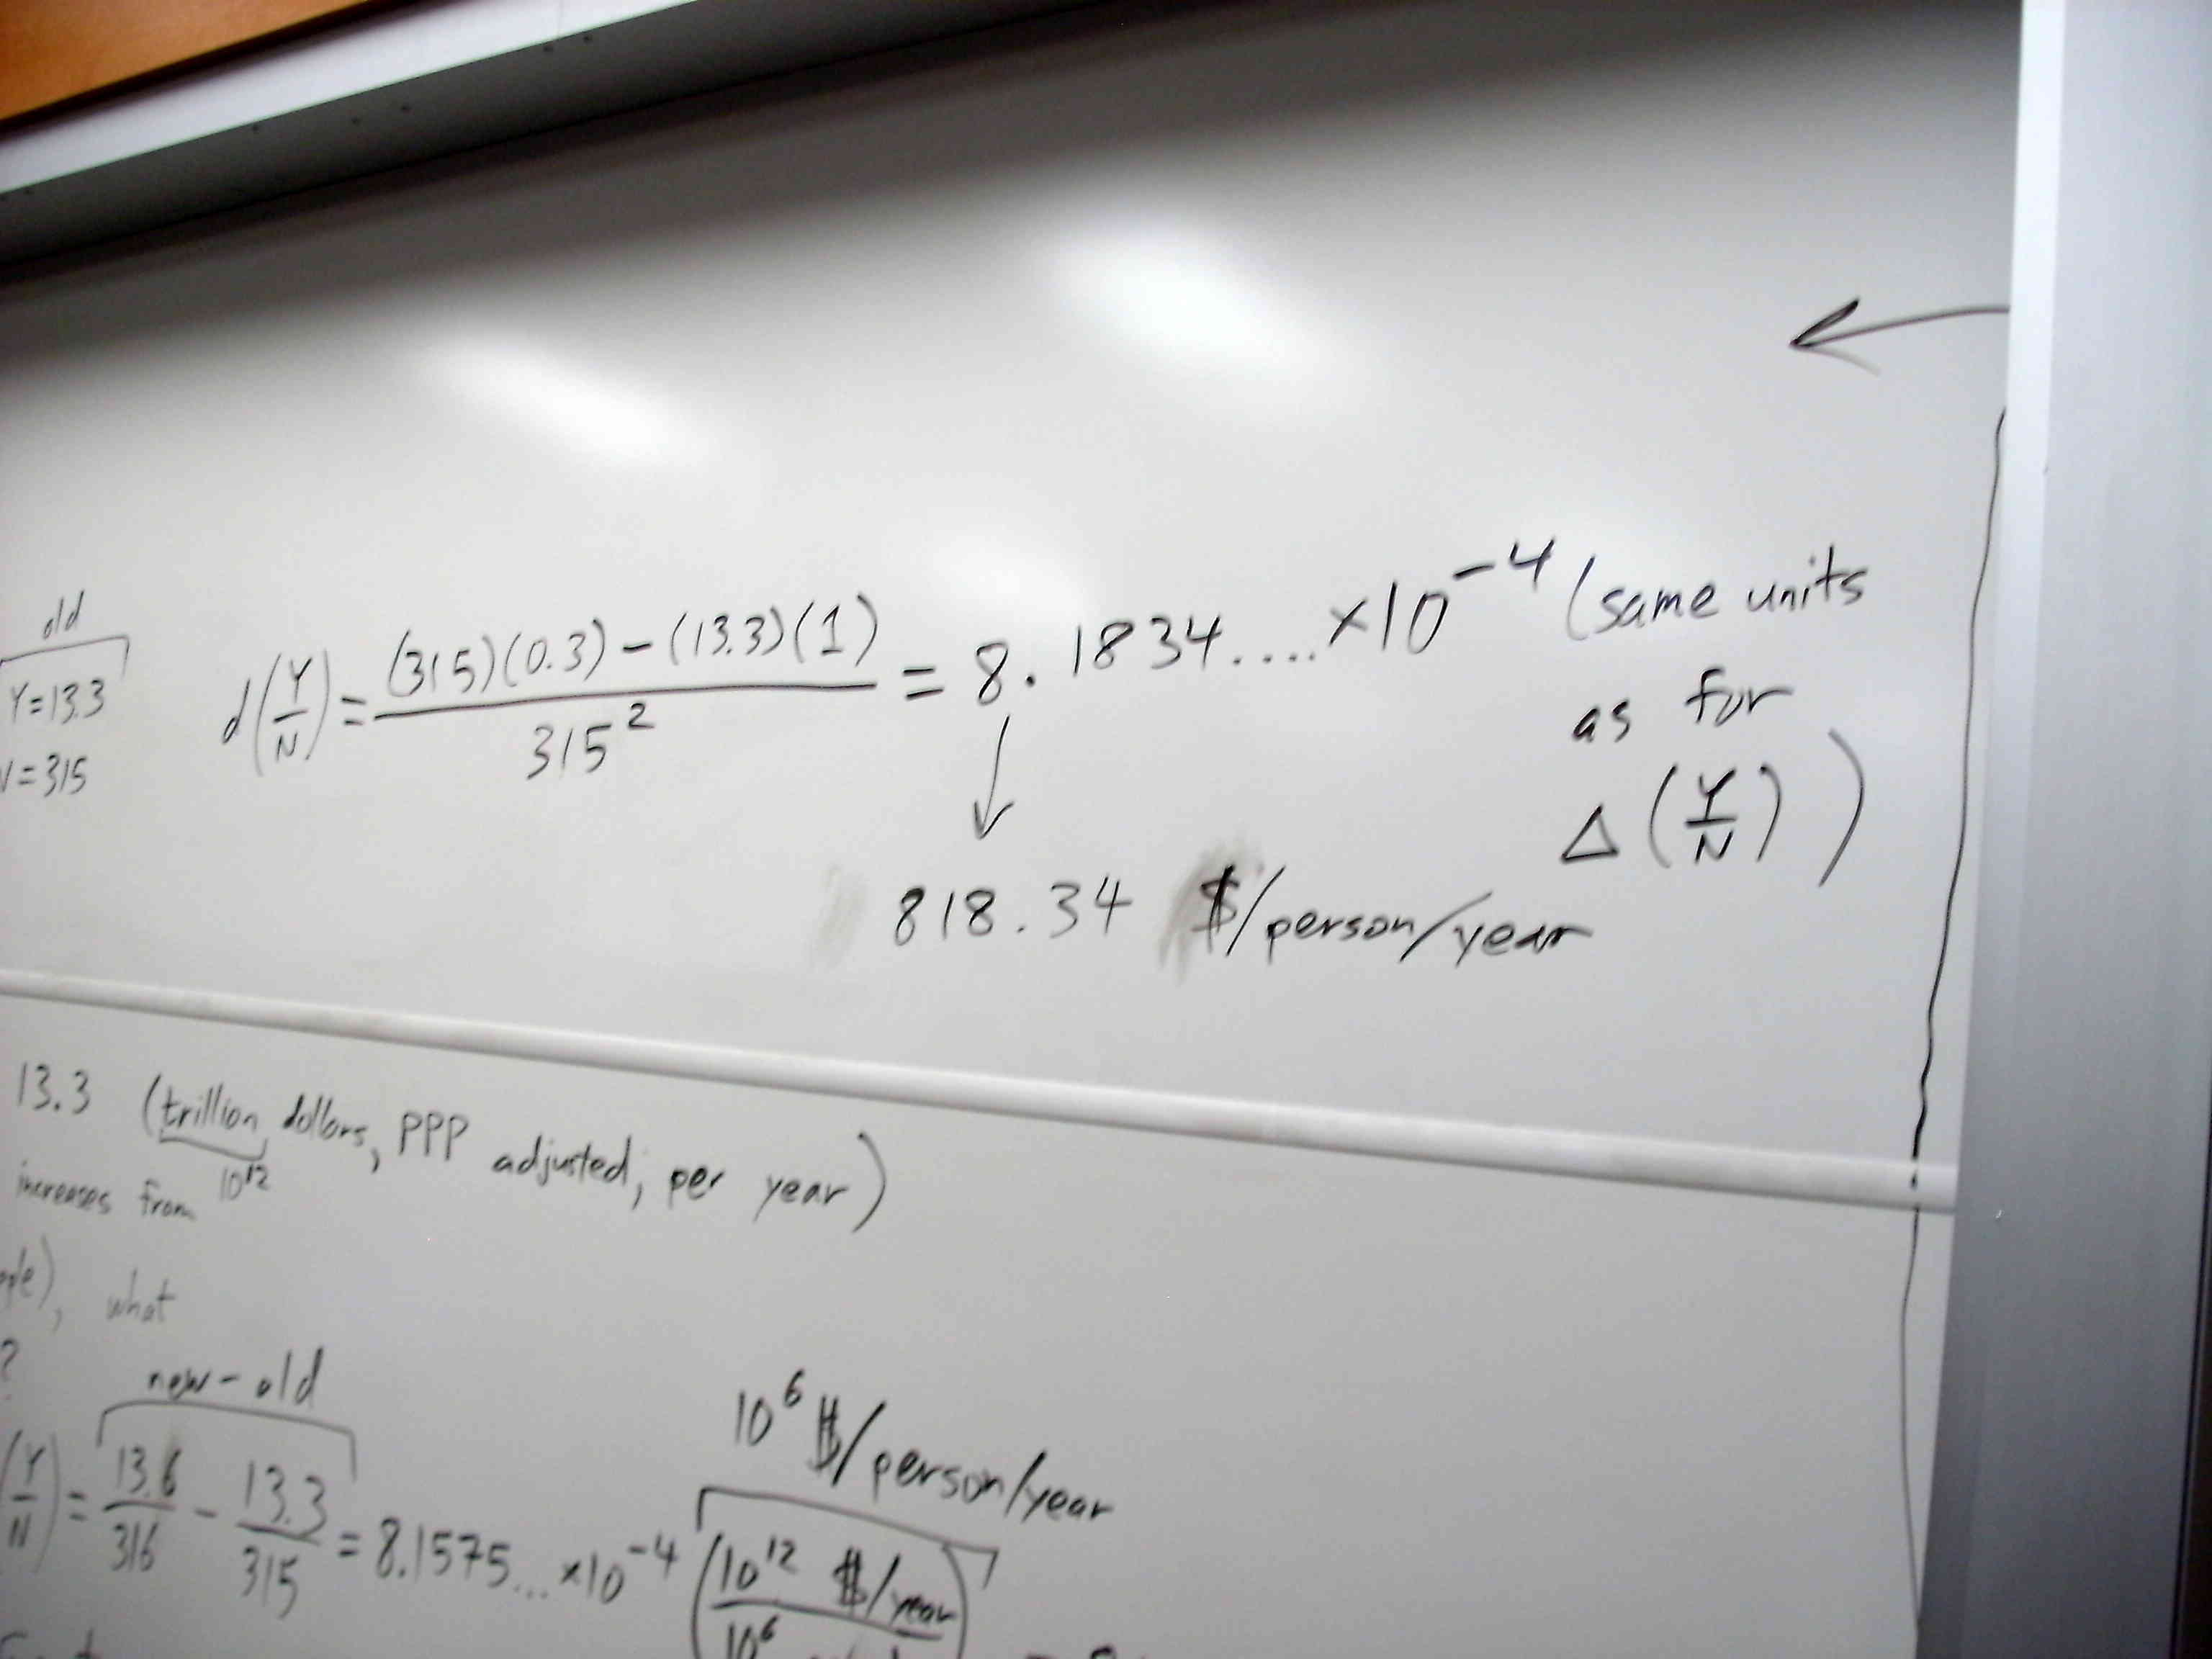 old
Y=13.3
N=315
d(Y/N) = (315)(0.3) - (13.3)(1) / 315² = 8.1834.... ×10⁻⁴ (same units
as for
Δ(Y/N))
818.34 $/person/year
13.3 (trillion dollars, PPP adjusted, per year)
10¹²
increases from
what
?
new - old
(Y/N) = 13.6/316 - 13.3/315 = 8.1575... ×10⁻⁴ (10¹² $/year / 10⁶
10⁶ $/person/year